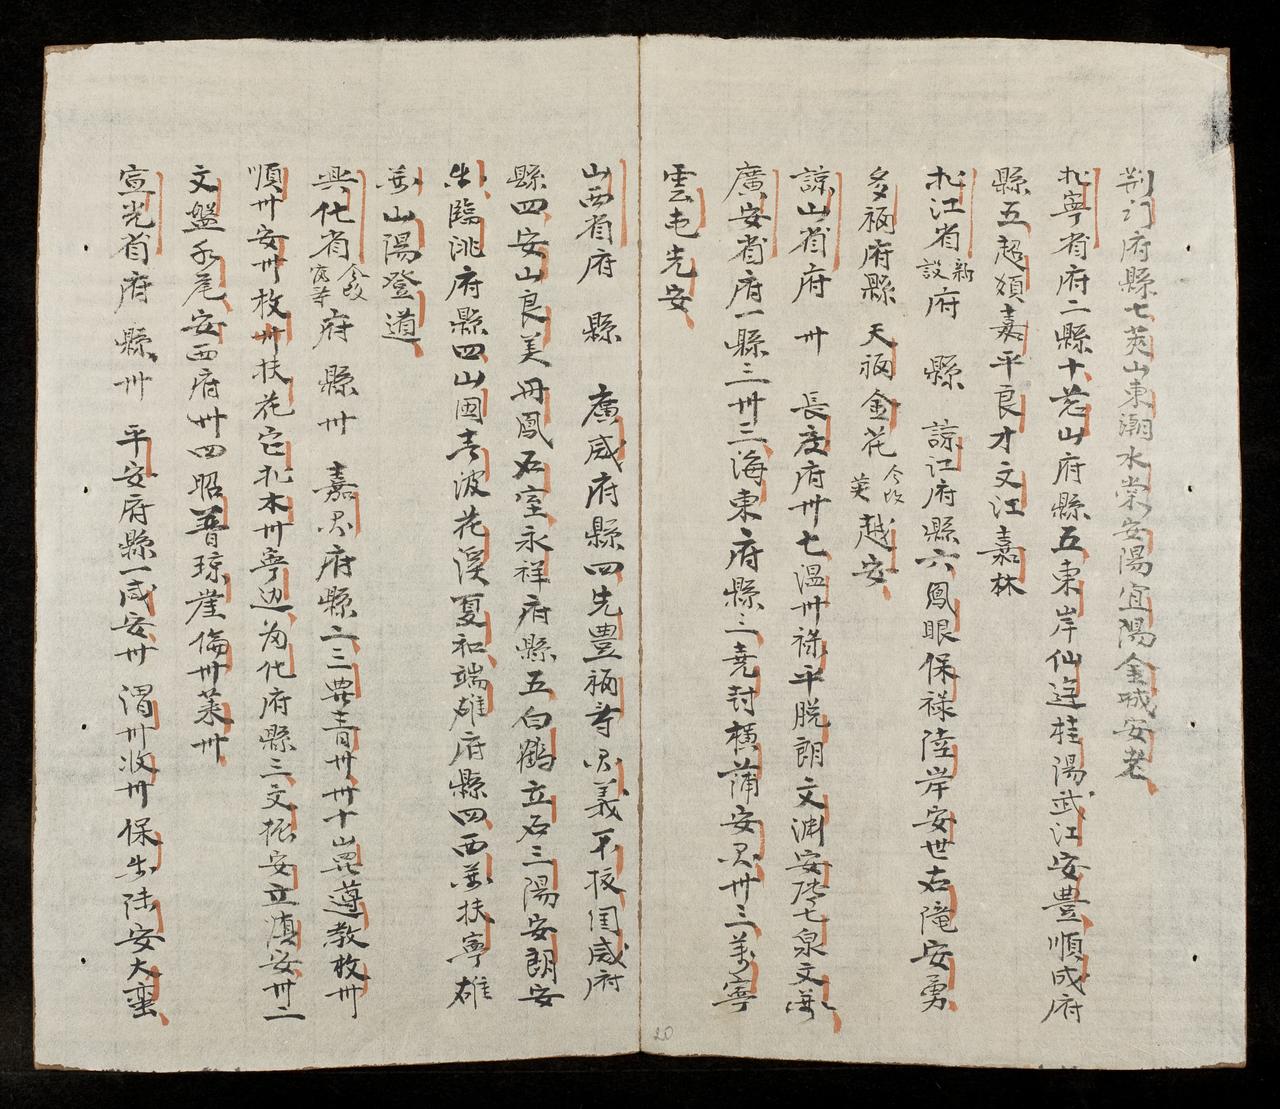 荆门府縣七荚山東潮水棠安陽宜陽金城安老
北寧省府二縣十慈山府縣五東岸仙遊桂陽武江安豊順成府
縣五超類嘉平良才文江嘉林
北江省新設府　縣　諒江府縣六鳳眼保禄陸岸安世右隴安勇
多福府縣　天福金花今改英越安
諒山省府　卅　長慶府卅七温卅禄平脱朗文淵安博七泉文關
廣安省府一縣三卅三海東府縣三堯封橫蒲安興卅三萬寧
雲屯先安
山西省府　縣　廣威府縣四先豊福壽興義不拔国威府
縣四安山良美丹鳳石室永祥府縣五白鶴立石三陽安朗安
朗臨洮府縣四山圍青波花溪夏和端雄府縣四西關扶寧雄
關山陽登道
興化省今改度寺府　縣卅　嘉興府縣二三農青卅卅十山罷遵教枚卅
順卅安卅枚卅扶花它北木卅寧边為化府縣三文振安立滇安卅二
文盤水尾安西府卅四昭晋琼崖倫卅萊卅
宣光省府　縣卅　平安府縣一咸安卅　渭卅收卅保樂陸安大蠻